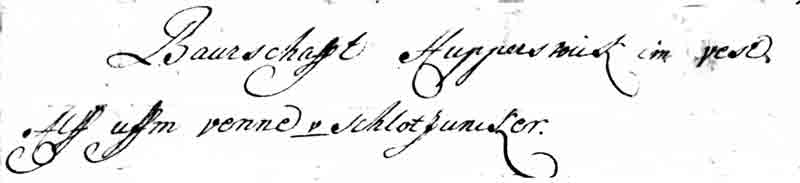 Baurschafft Hupperswick im vest.
Alff uffm venne v schlotjuncker.